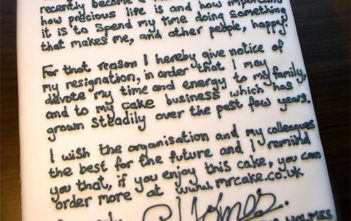 recently become a
how precious life is and how important
it is to spend my time doing something
that makes me, and other people, happy
For that reason I hereby give notice of
my resignation, in order that I may
devote my time and energy to my family,
and to my cake business which has
grown steadily over the past few years.
I wish the organisation and my colleagues
the best for the future and I remind
you that, if you enjoy this cake, you can
order more at www.mrcake.co.uk
Holmes